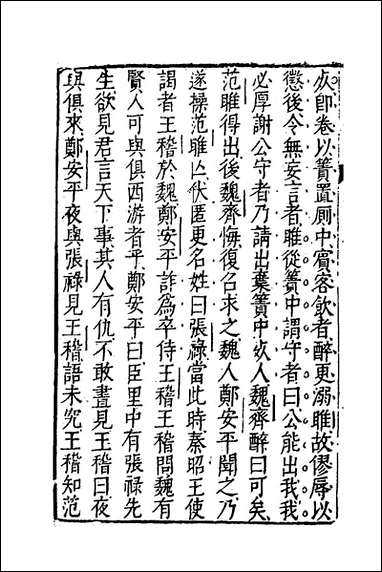 死即卷以簀置厠中賓客飲者醉更溺睢故僇辱以
懲後令無妄言者睢從簀中謂守者曰公能出我我
必厚謝公守者乃請出棄簀中死人魏齊醉曰可矣
范睢得出後魏齊悔復召求之魏人鄭安平聞之乃
遂操范睢亡伏匿更名姓曰張祿當此時秦昭王使
謁者王稽於魏鄭安平詐爲卒侍王稽王稽問魏有
賢人可與俱西游者乎鄭安平曰臣里中有張祿先
生欲見君言天下事其人有仇不敢晝見王稽曰夜
與俱來鄭安平夜與張祿見王稽語未究王稽知范